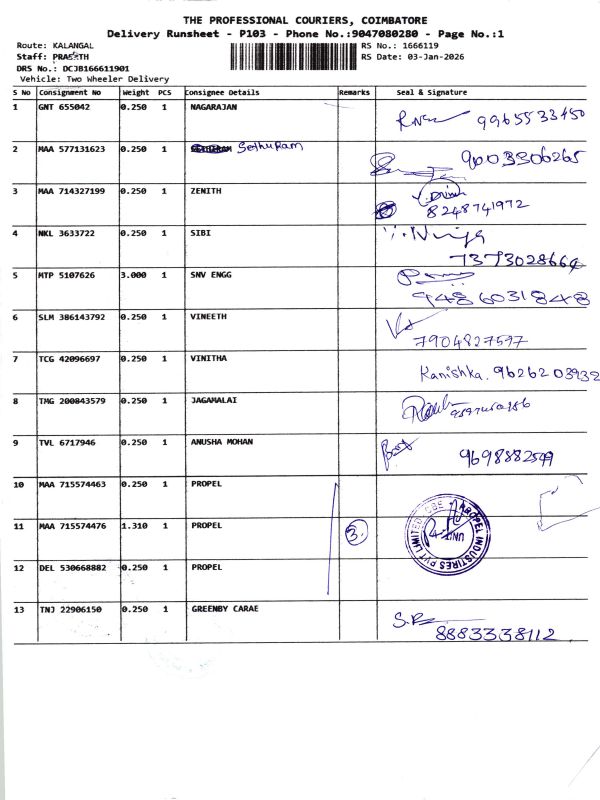 THE PROFESSIONAL COURIERS, COIMBATORE
Delivery Runsheet - P103 - Phone No.:9047080280 - Page No.:1
Route: KALANGAL
RS No.: 1666119
Staff: PRASATH
RS Date: 03-Jan-2026
DRS No.: DCJB166611901
Vehicle: Two Wheeler Delivery
S No Consignment No Weight PCS Consignee Details Remarks Seal & Signature
1 GNT 655042 0.250 1 NAGARAJAN 9965533450
2 MAA 577131623 0.250 1 Sethuram 9003306265
3 MAA 714327199 0.250 1 ZENITH 8248741972
4 NKL 3633722 0.250 1 SIBI 7373028664
5 MTP 5107626 3.000 1 SNV ENGG 9486031848
6 SLM 386143792 0.250 1 VINEETH 7904827597
7 TCG 42096697 0.250 1 VINITHA Kanishka. 9626203932
8 TMG 200843579 0.250 1 JAGAMALAI
9 TVL 6717946 0.250 1 ANUSHA MOHAN 9698882599
10 MAA 715574463 0.250 1 PROPEL
11 MAA 715574476 1.310 1 PROPEL 3. PROPEL INDUSTRIES PVT LIMITED CBE UNIT
12 DEL 530668882 0.250 1 PROPEL
13 TNJ 22906150 0.250 1 GREENBY CARAE 8883338112